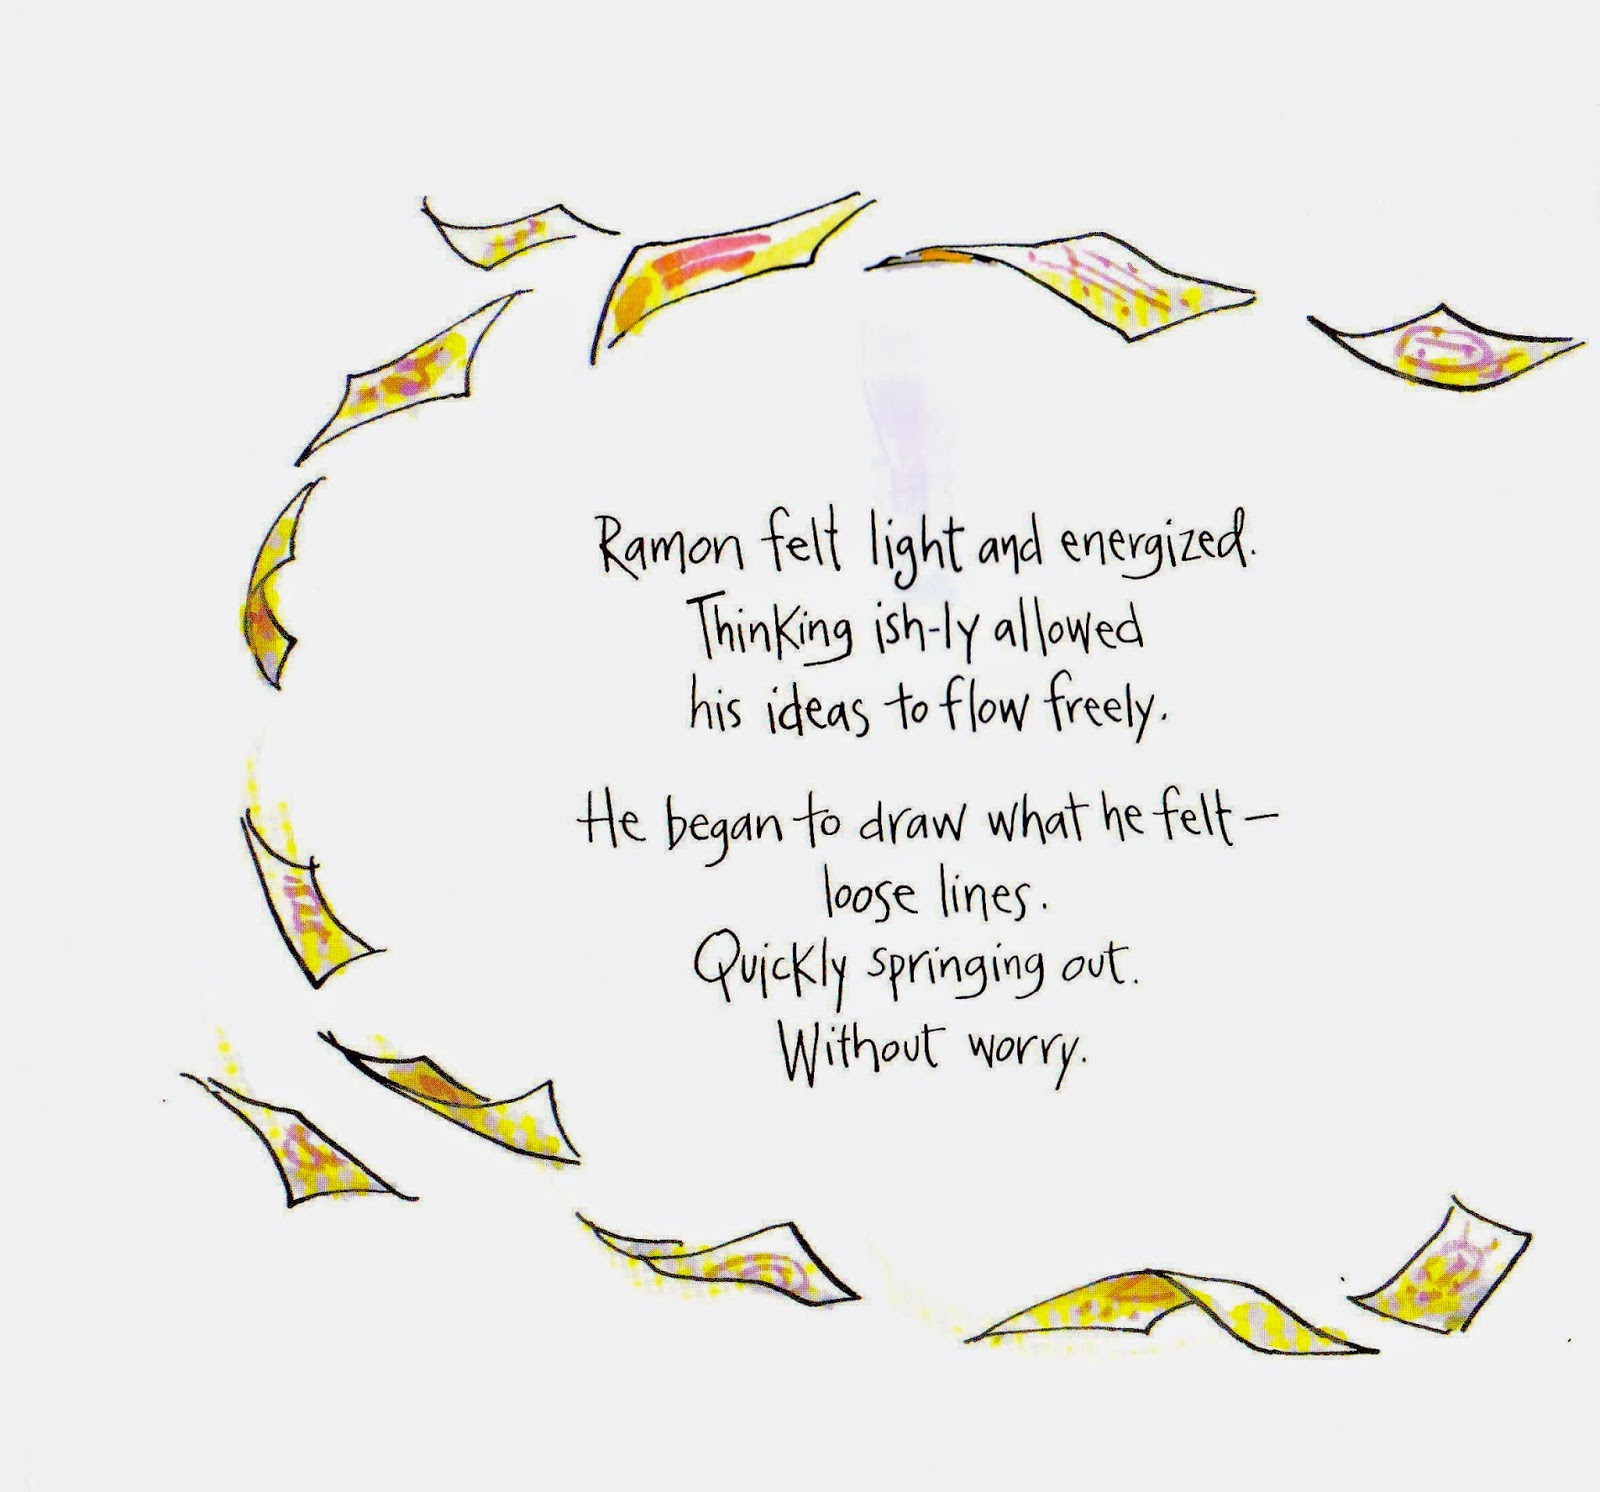 Ramon felt light and energized.
Thinking ish-ly allowed
his ideas to flow freely.
He began to draw what he felt—
loose lines.
Quickly springing out.
Without worry.